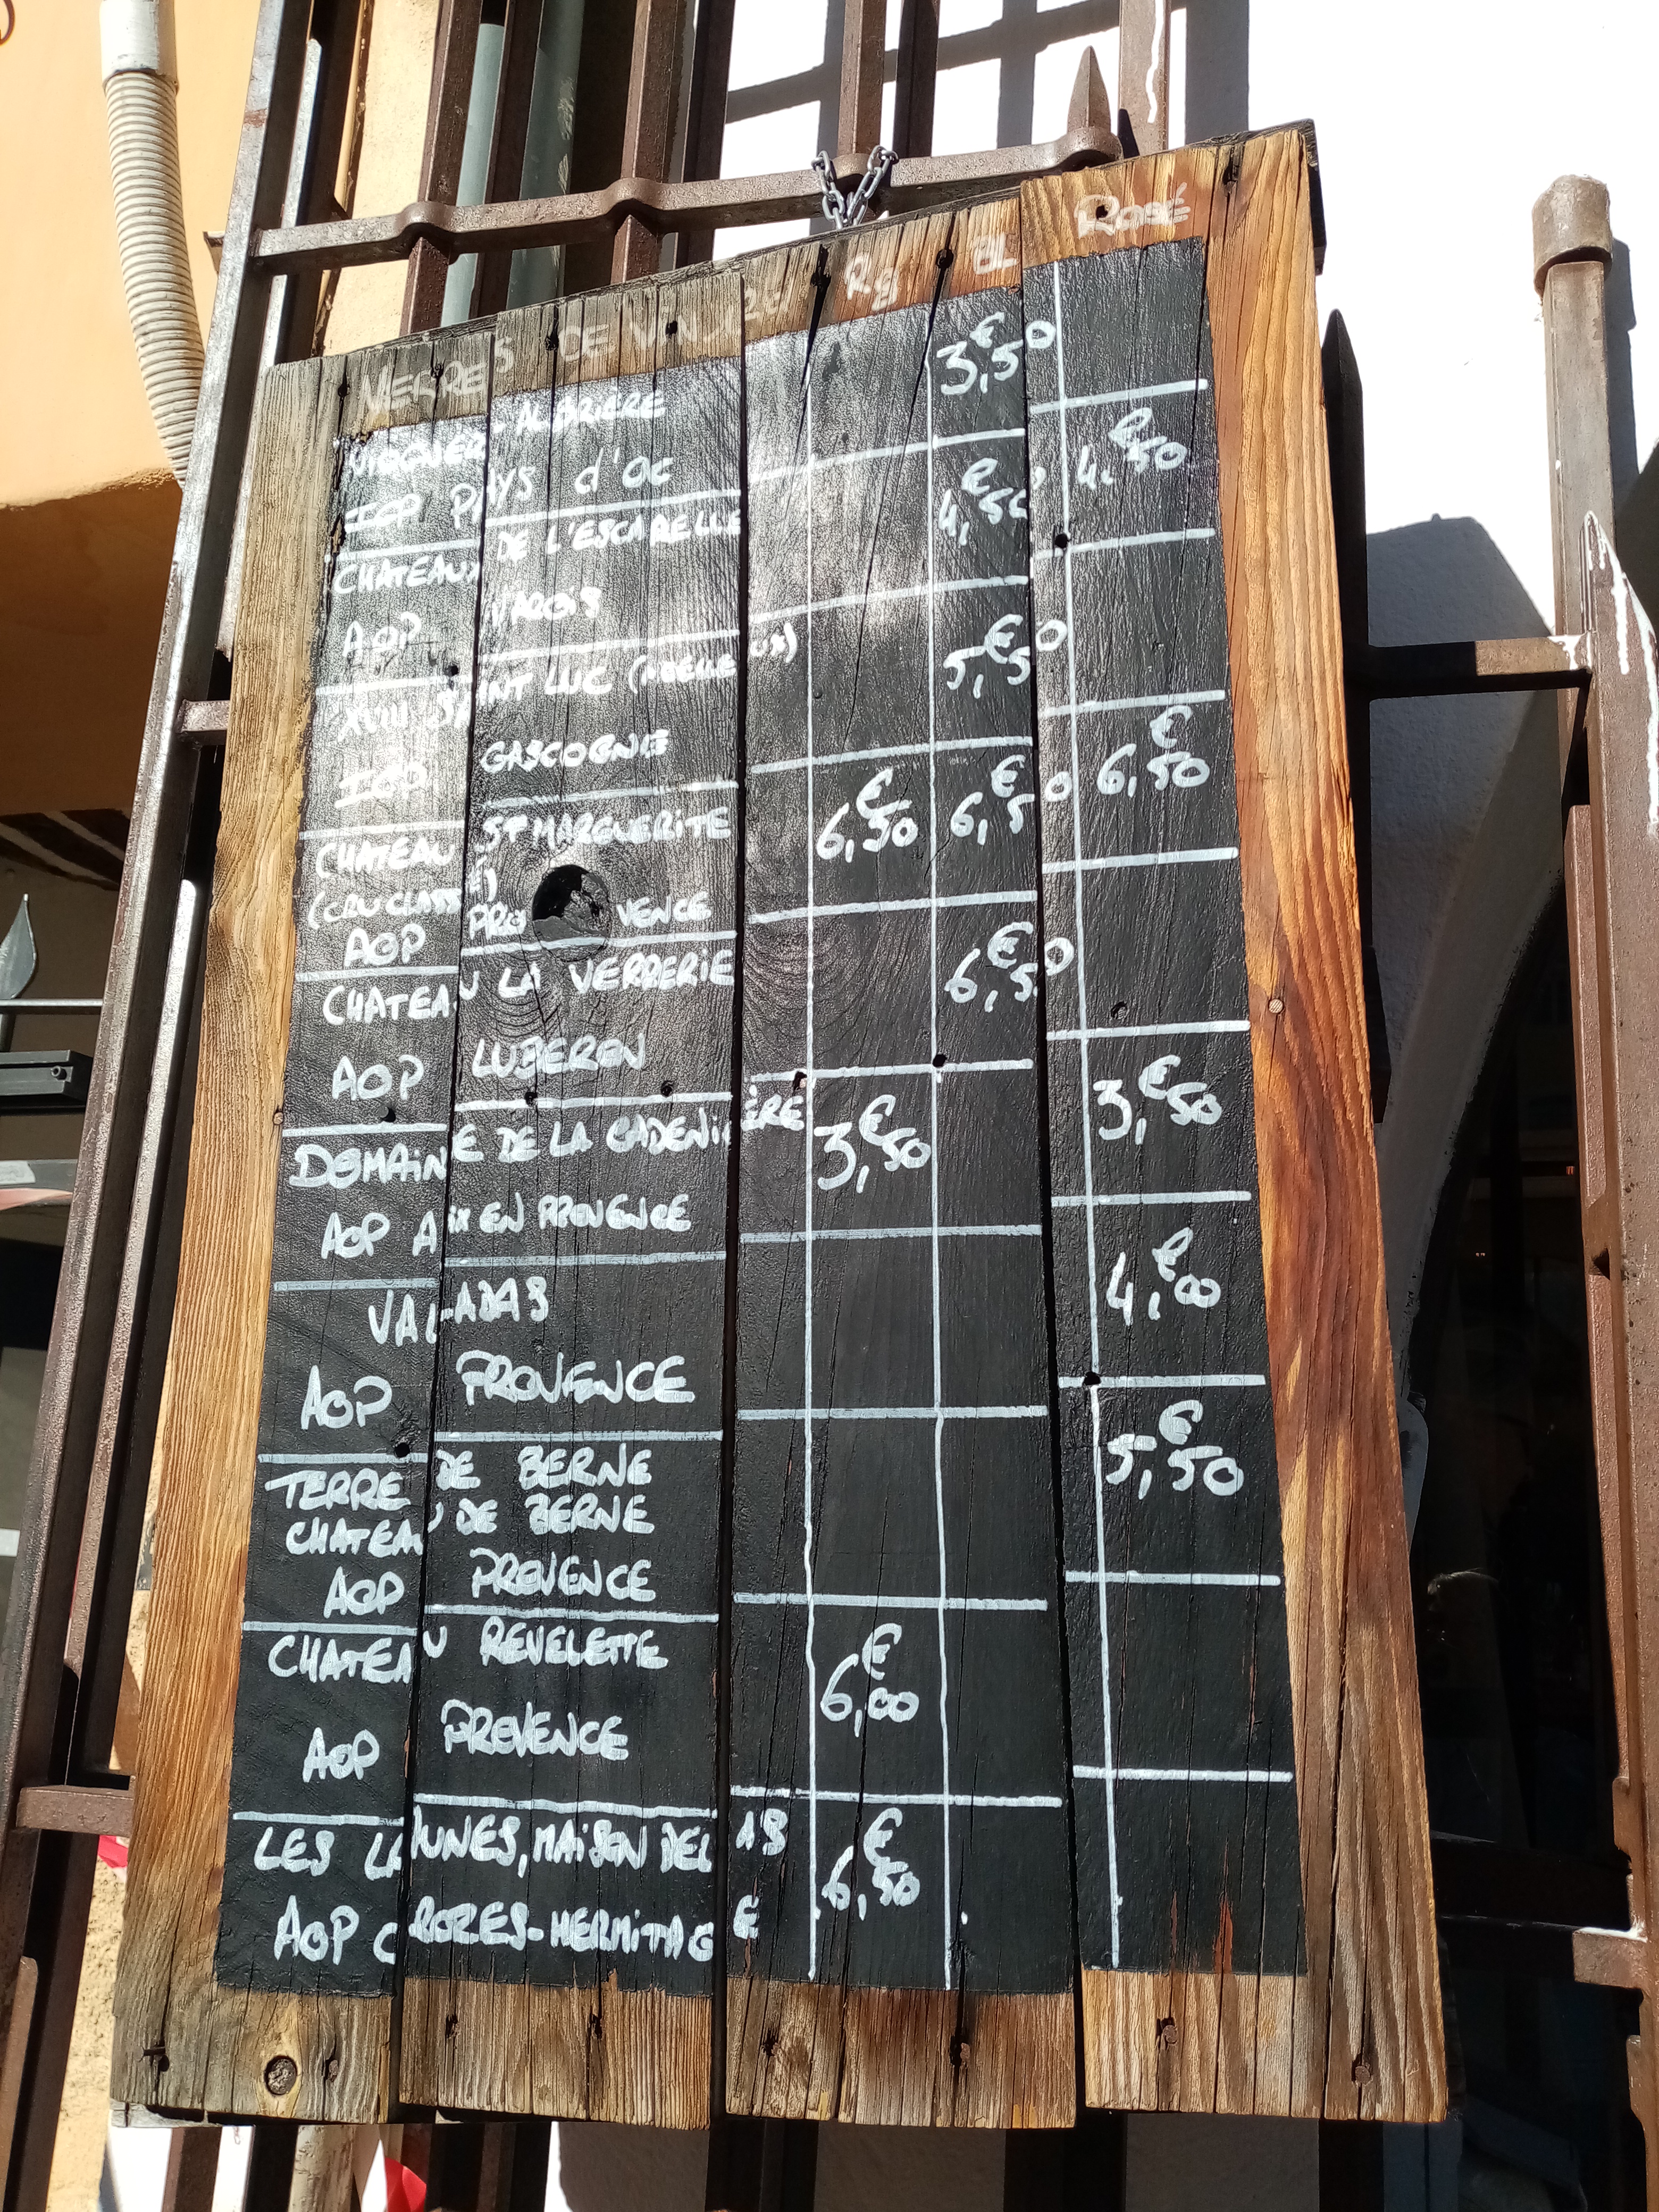 VERRES DE VIN RG BL ROSÉ
VIOGNIER - ALBRIERE 3,€50
IGP PAYS d'OC
CHATEAUX DE L'ESCARELLE 4,€50 4,€50
AOP VAROIS
XVIII SAINT LUC (MOELLEUX) 5,€50
IGP GASCOGNE
CHATEAU ST MARGUERITE 6,€50 6,€50 6,€50
(CRU CLASSÉ)
AOP PROVENCE
CHATEAU LA VERRERIE 6,€50
AOP LUBERON
DOMAINE DE LA CADENIÈRE 3,€50 3,€50
AOP AIX EN PROVENCE
VALADAS 4,€00
AOP PROVENCE
TERRE DE BERNE 5,€50
CHATEAU DE BERNE
AOP PROVENCE
CHATEAU REVELETTE 6,€00
AOP PROVENCE
LES LAUNES, MAISON DELAS 6,€50
AOP CROZES-HERMITAGE